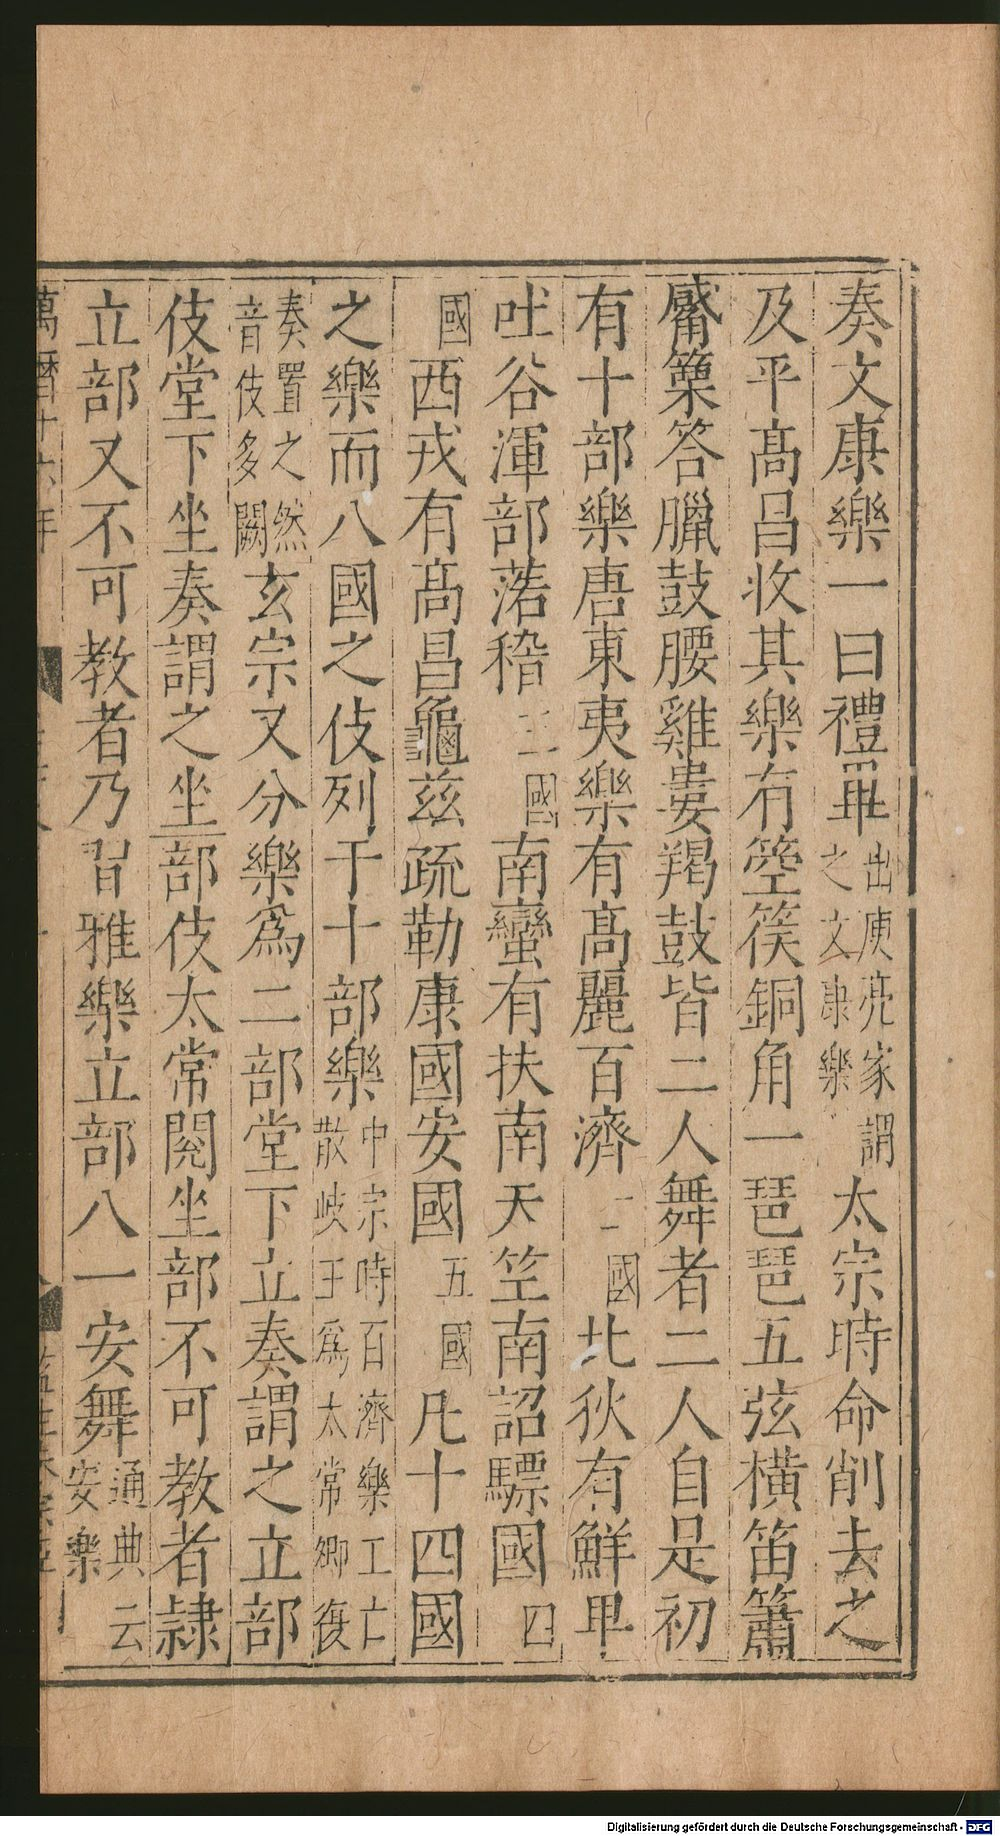 奏文康樂一曰禮畢出庾亮家謂之文康樂太宗時命削去之
及平高昌收其樂有箜篌銅角一琵琶五弦橫笛簫
觱篥答臘鼓腰鼓雞婁羯鼓皆二人舞者二人自是初
有十部樂唐東夷樂有高麗百濟二國北狄有鮮卑
吐谷渾部落稽三國南蠻有扶南南天竺南詔驃國四
國西戎有高昌龜茲疏勒康國安國五國凡十四國
之樂而八國之伎列于十部樂中宗時百濟樂工亡散岐王為太常卿復
奏置之然音伎多闕玄宗又分樂為二部堂下立奏謂之立部
伎堂下坐奏謂之坐部伎太常閱坐部不可教者隸
立部又不可教者乃習雅樂立部八一安舞通典云安樂
萬曆十六年
Digitalisierung gefördert durch die Deutsche Forschungsgemeinschaft - DFG